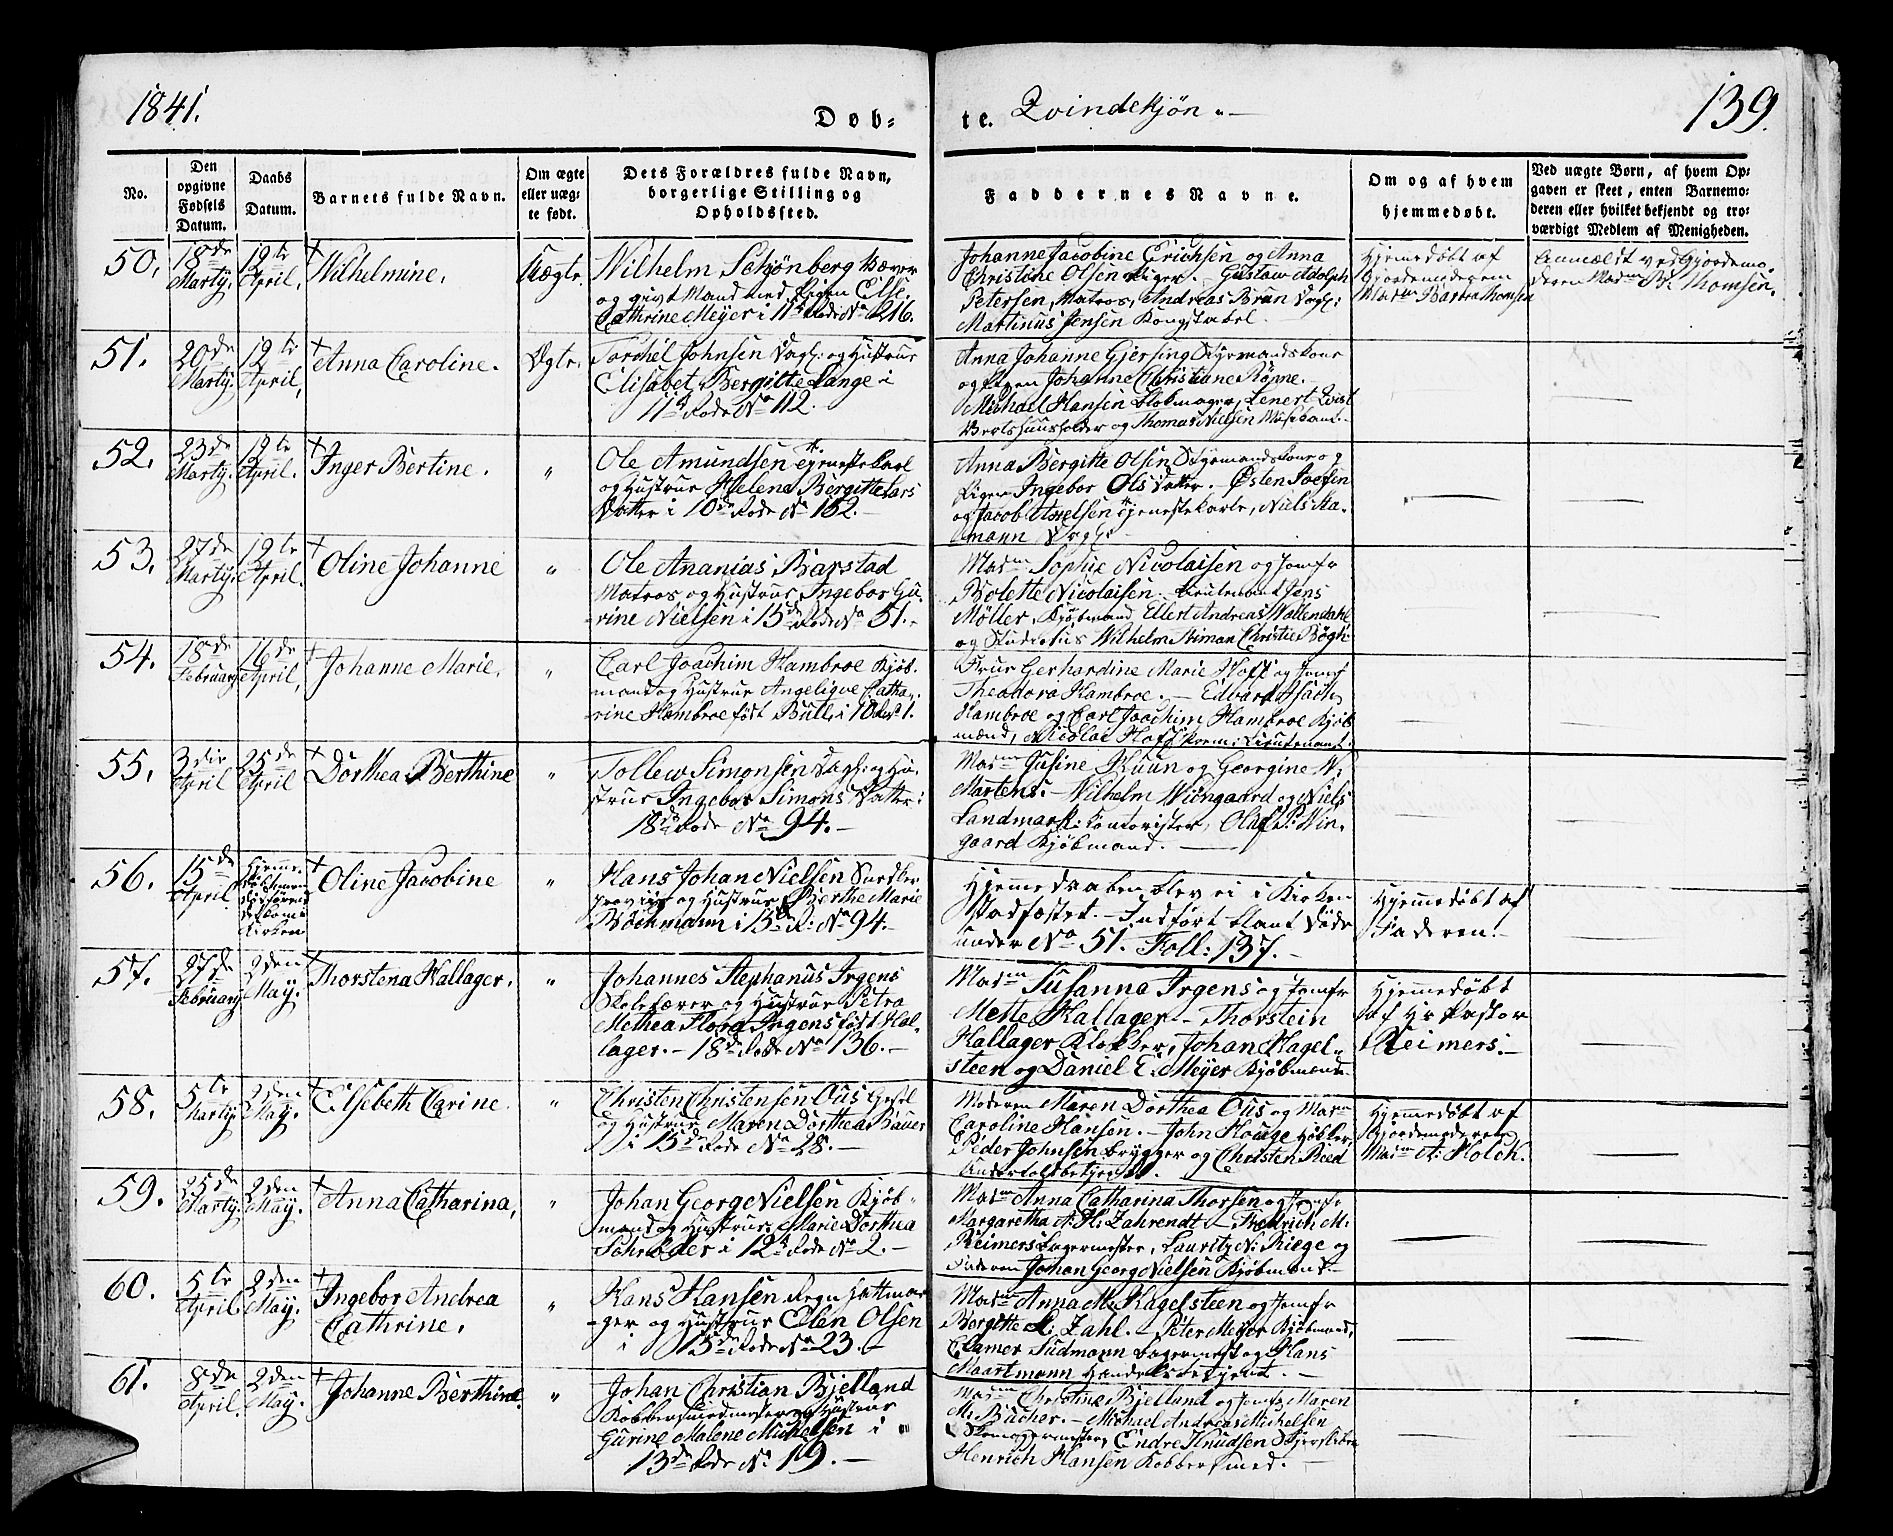 1841.
Døb-
te. Qvindekjøn.
139.
No.
Den opgivne Fødsels Datum.
Daabs Datum.
Barnets fulde Navn.
Om ægte eller uæg- te født.
Dets Forældres fulde Navn, borgerlige Stilling og Opholdssted.
Faddernes Navne.
Om og af hvem hjemmedøbt.
Ved uægte Børn, af hvem Op- gaven er skeet, enten Barnemo- deren eller hvilket bekjendt og tro- værdigt Medlem af Menigheden.
50. 18de Martij. 12te April. Wilhelmine. Uægte.
Wilhelm Schjønberg Væver
og givt Mand med Pigen Else
Cathrine Meyer i 11te Rode No 216.
Johanne Jacobine Erichsen og Anna
Christine Olsen Piger. - Gustav Adolph
Petersen Matros, Andreas Brun Dagl:
Martinus Jensen Kongstabel.
Hjemmedøbt af
Gjordemoderen
Madm Barbra Thomsen
Anmeldt ved Gjordemo-
deren Madm B. Thomsen.
51. 20de Martij. 12te April, Anna Caroline. Ægte.
Torchel Johnsen Dagl: og Hustrue
Elisabet Bergitte Lange i
11te Rode No 112.
Anna Johanne Gjersing Styrmandskone
og Pigen Johanne Christiane Röpne.
Michael Hansen Blokmager, Lenert Qvist
Vertshuusholder og Thomas Nielsen Musikant.
52. 23de Martij. 12te April. Inger Bertine. "
Ole Amundsen Tjenestekarl
og Hustrue Helene Bergitte Lars
Datter i 10de Rode No 152.
Anna Bergitte Olsen Styrmandskone og
Pigen Ingebor Ols Datter. - Østen Josefsen
og Jacob Axelsen Tjenestekarle, Niels Aa-
mann Dagl:
53. 27de Martij. 12te April. Oline Johanne "
Ole Ananias Barstad
Matros og Hustrue Ingebor Gu-
rine Nielsen i 15de Rode No 51.
Madm Sophie Nicolaisen og Jomfr
Bolette Nicolaisen. Lieutenant Jens
Møller, Kjøbmand Ellert Andreas Wallendahl
og Studiosus Wilhelm Friman Christie Bøgh
54. 18de Februar 16de April, Johanne Marie. "
Carl Joachim Hambroe Kjøb-
mand og Hustrue Angelique Catha-
rine Hambroe født Bull i 10 Rode 1.
Frue Gerhardine Marie Hoff og Jomf
Theodora Hambroe. - Edvard Isach
Hambroe og Carl Joachim Hambroe Kjøb
mænd, Nicolai Hoff Prem: Lieutenant.
55. 3die April 25de April Dorthea Berthine "
Tollew Simonsen Dagl: og Hu-
strue Ingebor Simons Datter i
18de Rode No 94.
Madm Jusine Kuun og Georgine W.
Martens. - Wilhelm Wiingaard og Niels
Landmark Contorister, Oluf P: Win-
gaard Kjøbmand.
56. 15de April Hjemme- Kirken Oline Jacobine "
Hans Johan Nielsen
og Hustrue Berthe Marie
Böchmann i 15de R: No 94.
Hjemmedaaben blev ei i Kirken
stadfæstet. - Indført blant Døde
under No 51. Foll: 137.
Hjemmedøbt af
Faderen.
57. 27de Februar 2den May. Thorstena Hallager. "
Johannes Stephanus Irgens
Skolelærer og Hustrue Petra
Methea Flora Irgens født Hal-
lager. - 18de Rode No 136.
Madm Susanna Irgens og Jomfr
Mette Hallager. - Thorstein
Hallager Klokker, Johan Hagel-
steen og Daniel E. Meyer Kjøbmænd.
Hjemmedøbt
af Hr Pastor
Reimers.
58. 5te Martij 2den May. Elsebeth Carine. "
Christen Christensen Ous Gesel
og Hustrue Maren Dorthea Bauer
i 15de Rode No 28.
Moderen Maren Dorthea Ous og Madm
Caroline Hansen. - John Houge Høkker,
Peder Johnsen Brygger og Christen Reed
Hjemmedøbt af
Gjordemoderen
Madm A. Holck.
59. 25de Martij. 2den May. Anna Catharina, "
Johan George Nielsen Kjøb-
mand og Hustrue Marie Dorthea
Schrøder i 12te Rode No 2.
Madm Anna Catharina Thorsen og Jomfr
Margaretha A. H: Zahrendt. - Fredrich M.
Reimers Bagermester, Lauritz N: Riege og
Faderen Johan George Nielsen Kjøbmand.
60. 5te April 2den May. Ingebor Andrea
Cathrine. "
Hans Hansen Regn Hattmas-
ger og Hustrue Elen Olsen
i 15de Rode No 23.
Madm Anna M. Hagelsteen og Jomfr
Bergitte L: Zahl. - Peter Meyer Kjøbmand,
Clamer Sudmann Bagermest og Hans
Maartmann Handelsbetjent.
61. 8de April. 2den May. Johanne Berthine. "
Johan Christian Bjelland
Kobbersmedmester og Hustrue
Gurine Malene Michelsen i
13de Rode No 19.
Madm Christine Bjelland og Jomfr Maren
M. Bücher. - Michael Andreas Michelsen
Skomagermester, Endre Knudsen
Henrich Hansen Kobbersmed.